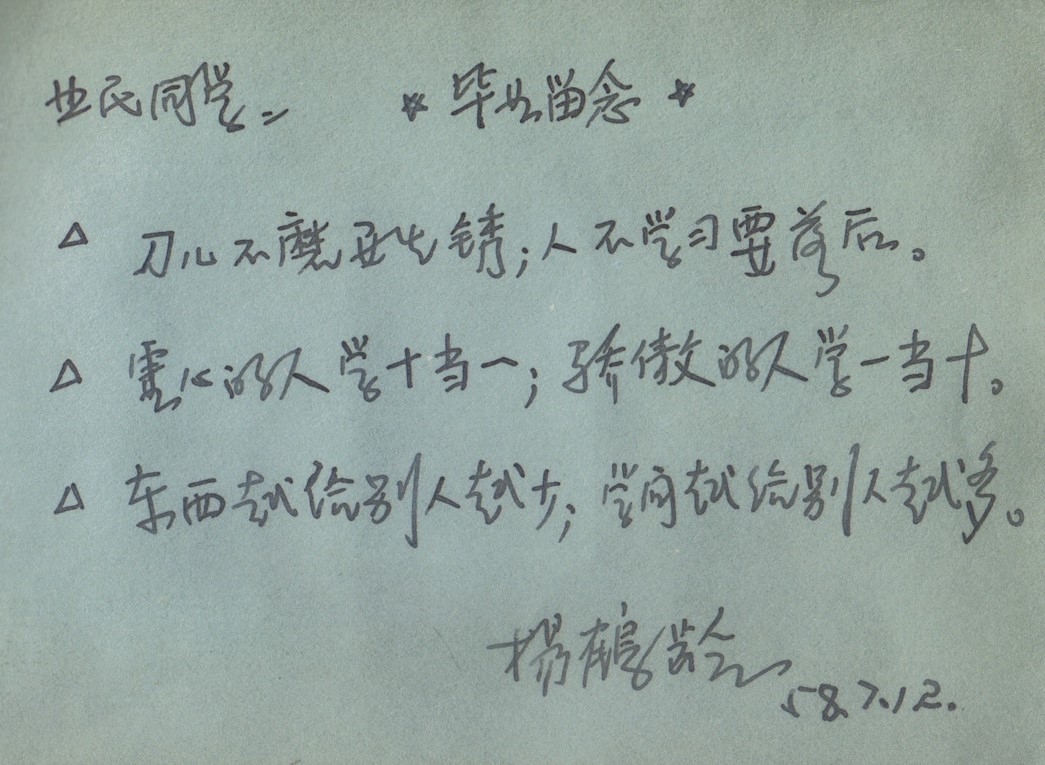 世民同学: ☆ 毕业留念 ☆
△ 刀儿不磨要生锈;人不学习要落后。
△ 虚心的人学十当一;骄傲的人学一当十。
△ 东西越给别人越少;学问越给别人越多。
杨鹤龄
58.7.12.